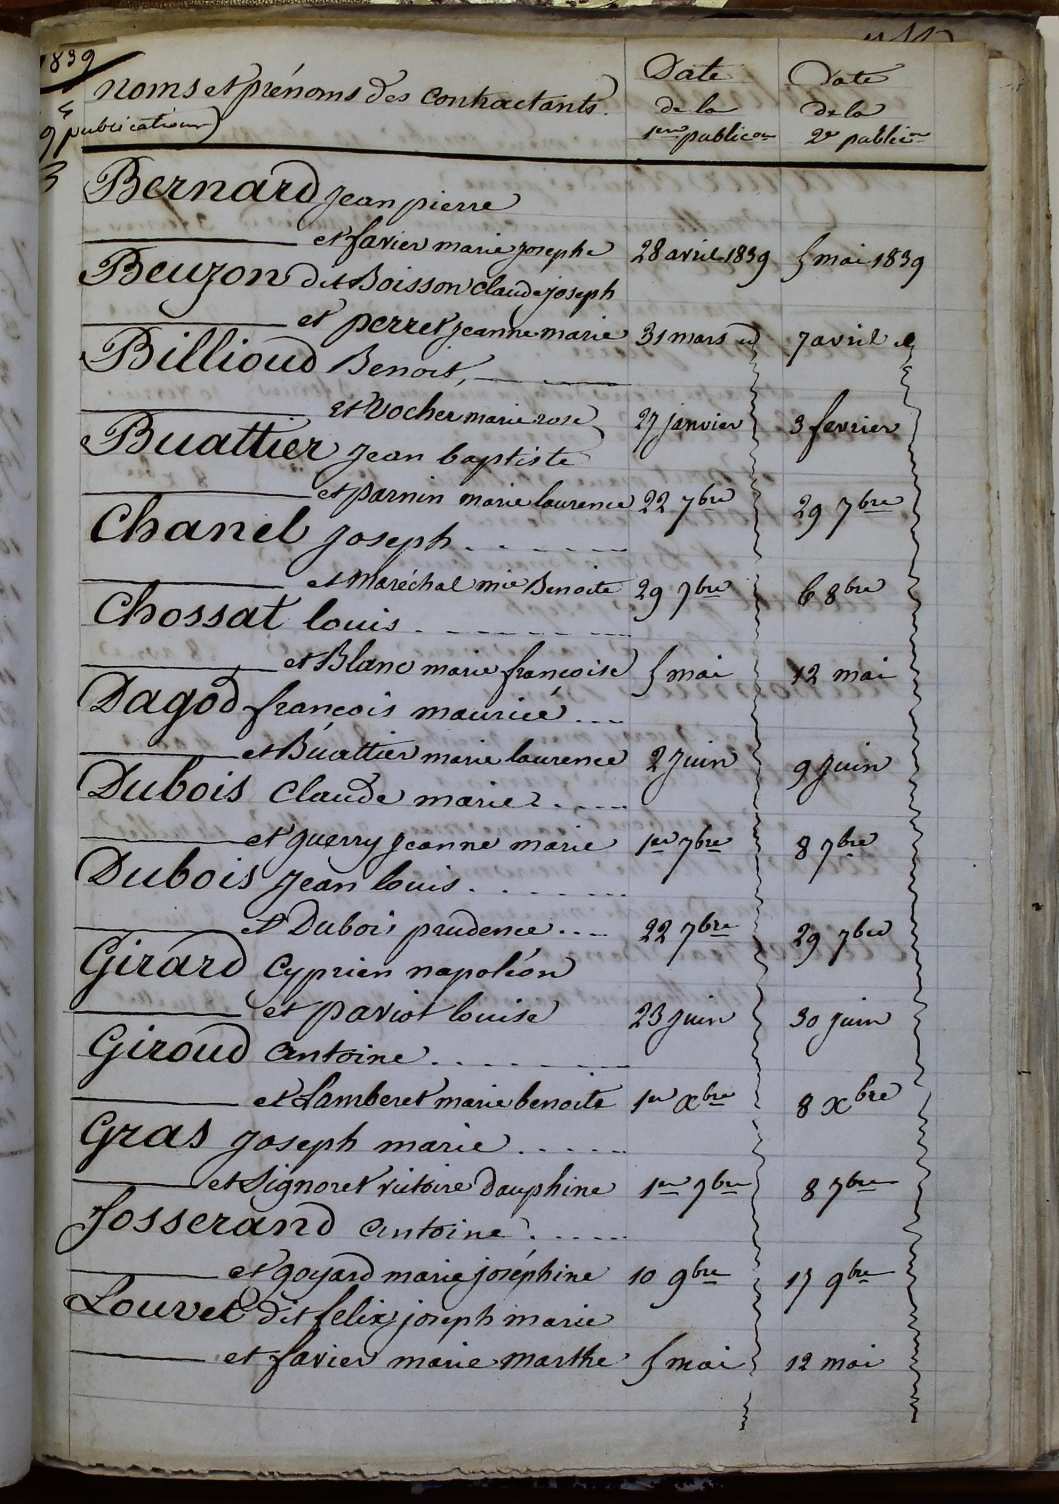 1839
publications
noms et prénoms des contractants. Date de la 1ere publicon Date de la 2e publicon
Bernard jean pierre
et favier marie josephe 28 avril 1839 5 mai 1839
Beuzon dit Boisson claude joseph
et perret jeanne marie 31 mars id 7 avril id
Billioud Benoit,
et Vocher marie rose 27 janvier 3 fevrier
Buattier jean baptiste
et parnin marie laurence 22 7bre 29 7bre
Chanel joseph
et Maréchal mie Benoite 29 7bre 6 8bre
Chossat louis
et Blanc marie françoise 5 mai 12 mai
Dagod françois maurice
et Buattier marie laurence 2 juin 9 juin
Dubois claude marie
et guerry jeanne marie 1er 7bre 8 7bre
Dubois jean louis
et Dubois prudence 22 7bre 29 7bre
Girard cyprien napoléon
et pariot louise 23 juin 30 juin
Giroud antoine
et Lamberet marie benoite 1er Xbre 8 Xbre
Gras joseph marie
et Signoret victoire dauphine 1er 7bre 8 7bre
Josserand antoine
et goyard marie joséphine 10 9bre 17 9bre
Louvet dit felix joseph marie
et favier marie marthe 5 mai 12 mai